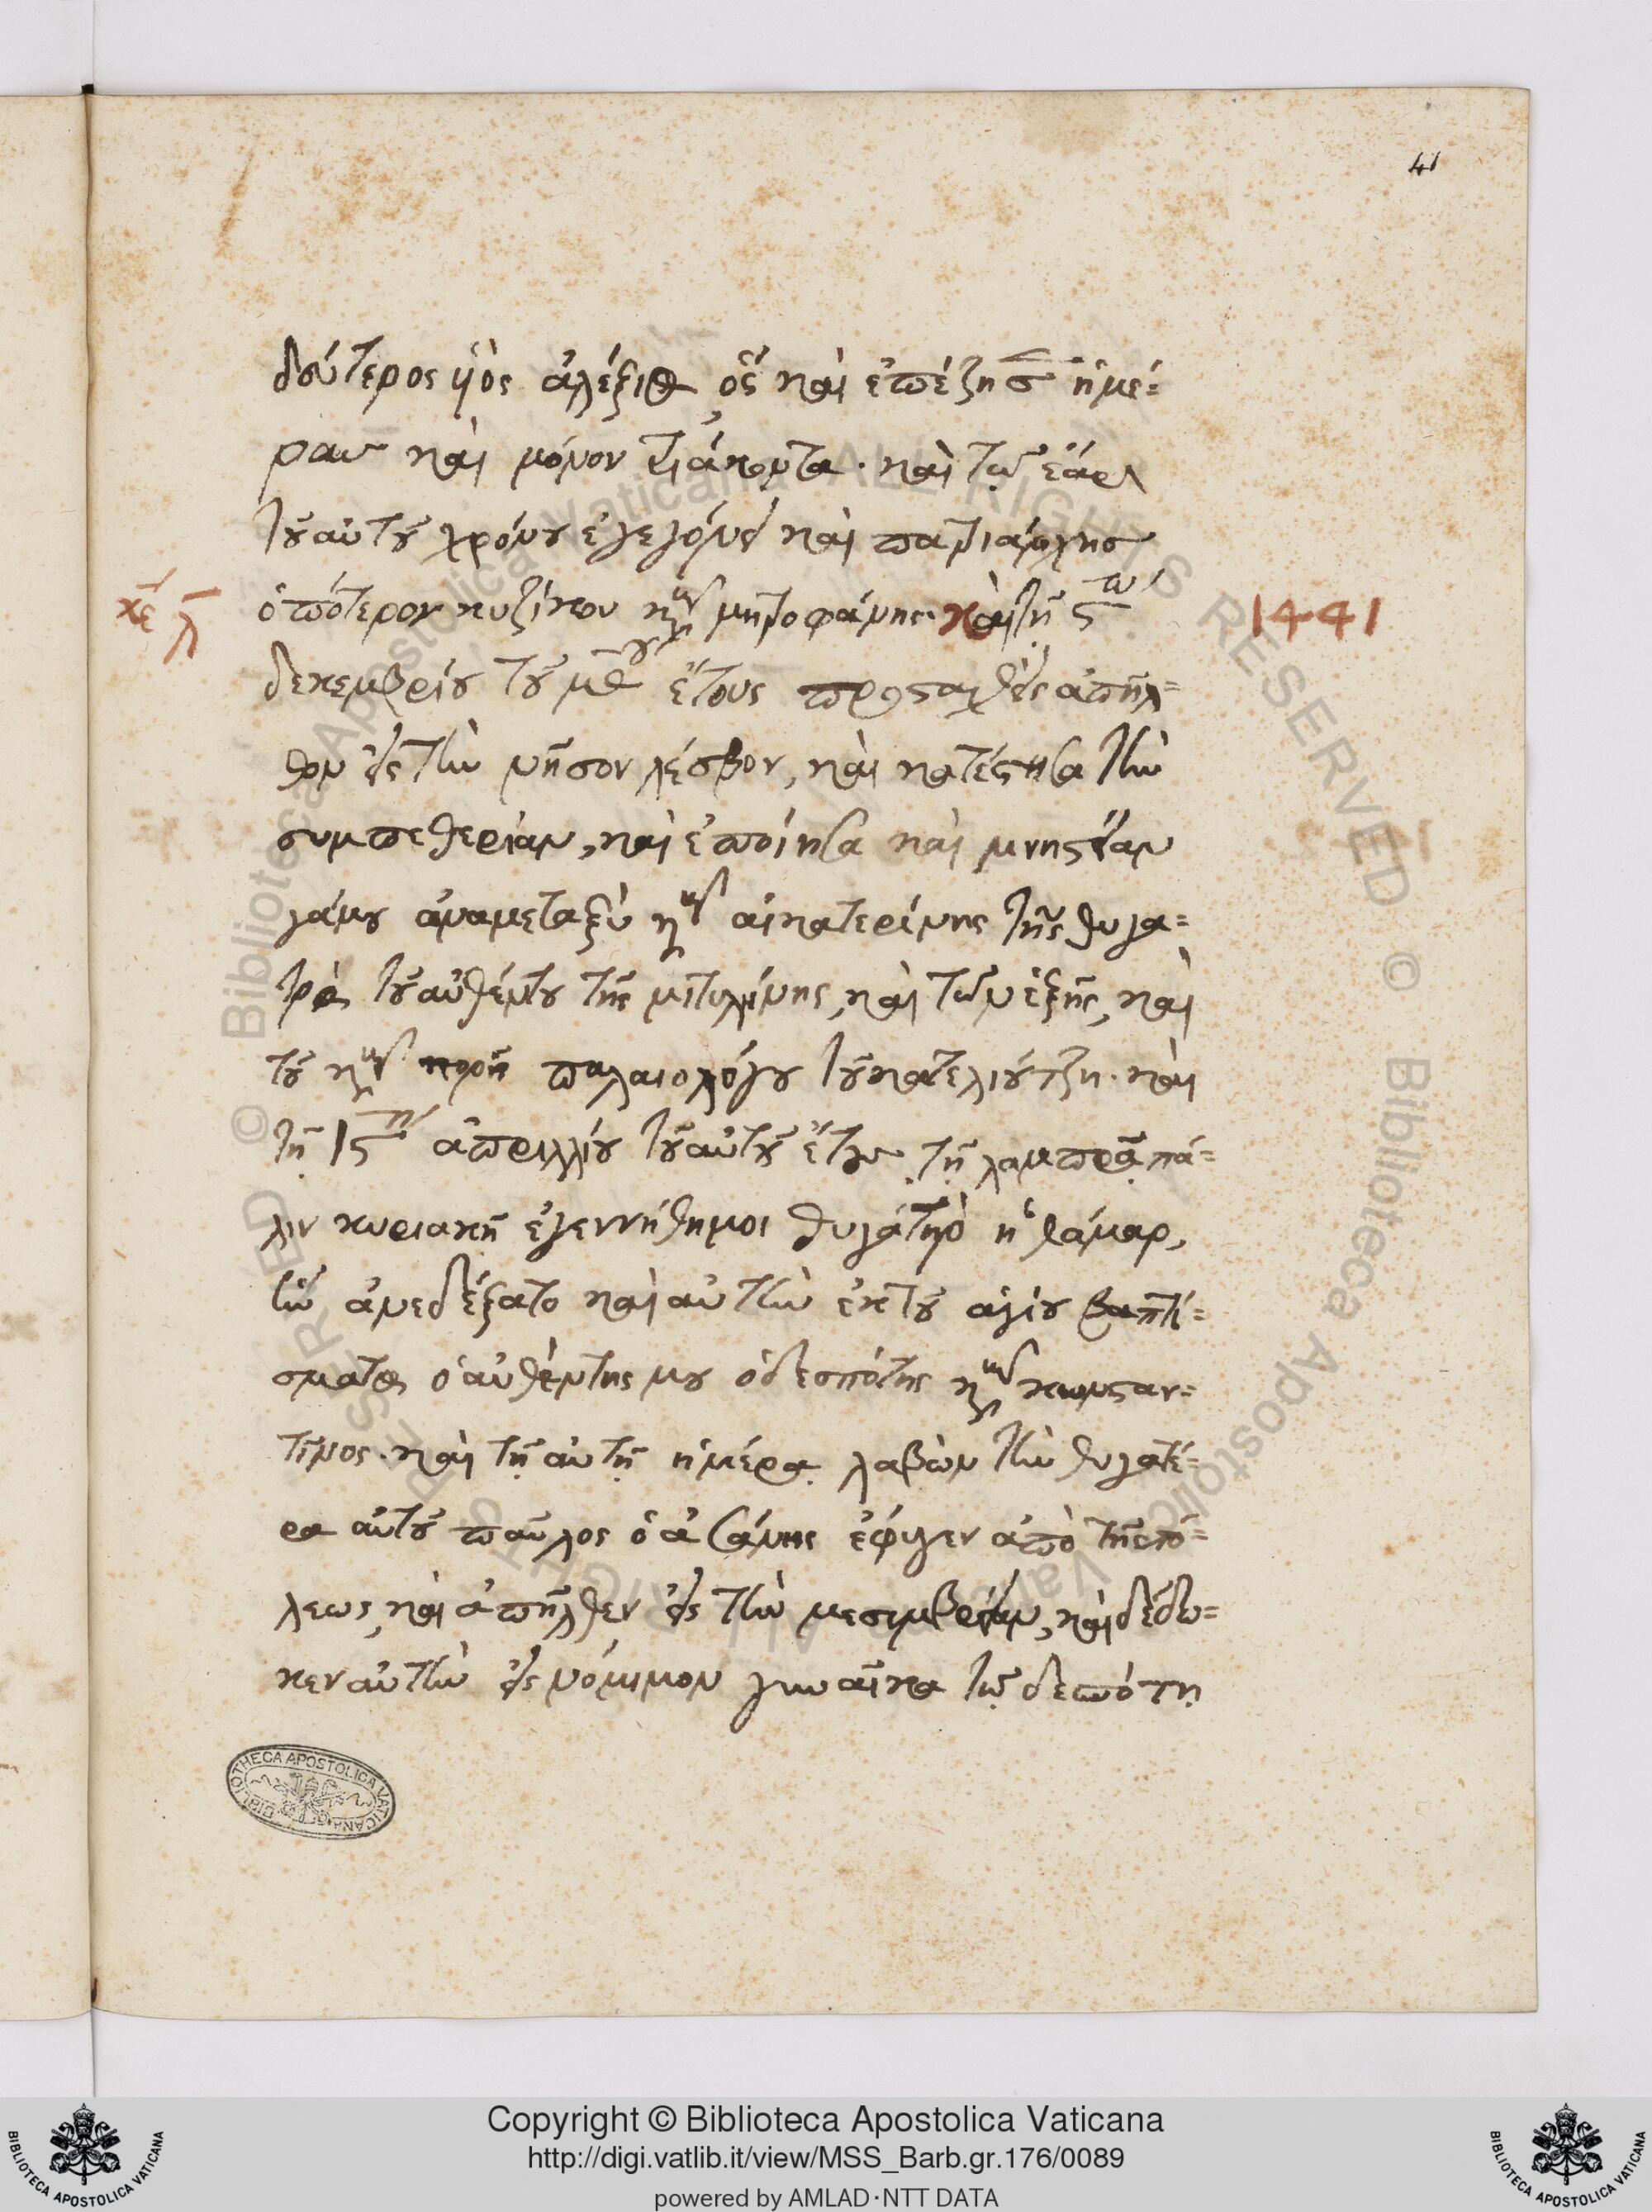 41
δεύτερος υἱὸς ἀλέξιος ὃς καὶ ἐπέζησεν ἡμέ=
ρας καὶ μόνον τριάκοντα· καὶ τῶ ἔαρι
τοῦ αὐτοῦ χρόνου ἐγεγόνει καὶ πατριάρχης
ὁ πρότερον κυζίκου κὺρ μητροφάνης· καὶ τῇ ς
κε λ
1441
δεκεμβρίου τοῦ μθου ἔτους προσταχθεὶς ἀπῆλ=
θον εἰς τὴν νῆσον λέσβον, καὶ κατέστησα τὴν
συμπεθερίαν, καὶ ἐποίησα καὶ μνηστείαν
γάμου ἀναμεταξὺ κυρ αἰκατερίνης τῆς θυγα=
τρὸς τοῦ αὐθέντου τῆς μιτυλήνης, καὶ τῶν ἑξῆς, καὶ
τοῦ κυρ παλαιολόγου τοῦ κατελιούτζη· καὶ
τῇ ις ἀπριλλίου τοῦ αὐτοῦ ἔτους τῇ λαμπρᾷ πά=
λιν κυριακῇ ἐγεννήθη μοι θυγάτηρ ἡ θάμαρ,
ἣν ἀνεδέξατο καὶ αὐτὴν ἐκ τοῦ ἁγίου βαπτί=
σματος ὁ αὐθέντης μου ὁ δεσπότης κὺρ κωνσταν=
τῖνος· καὶ τῇ αὐτῇ ἡμέρᾳ λαβὼν τὴν θυγατέ=
ρα αὐτοῦ παῦλος ὁ ἀσάνης ἔφυγεν ἀπὸ τῆς πό=
λεως, καὶ ἀπῆλθεν εἰς τὴν μεσημβρίαν, καὶ δέδω=
κεν αὐτὴν εἰς νόμιμον γυναῖκα τῷ δεσπότῃ
BIBLIOTHECA APOSTOLICA VATICANA
Copyright © Biblioteca Apostolica Vaticana
http://digi.vatlib.it/view/MSS_Barb.gr.176/0089
powered by AMLAD·NTT DATA